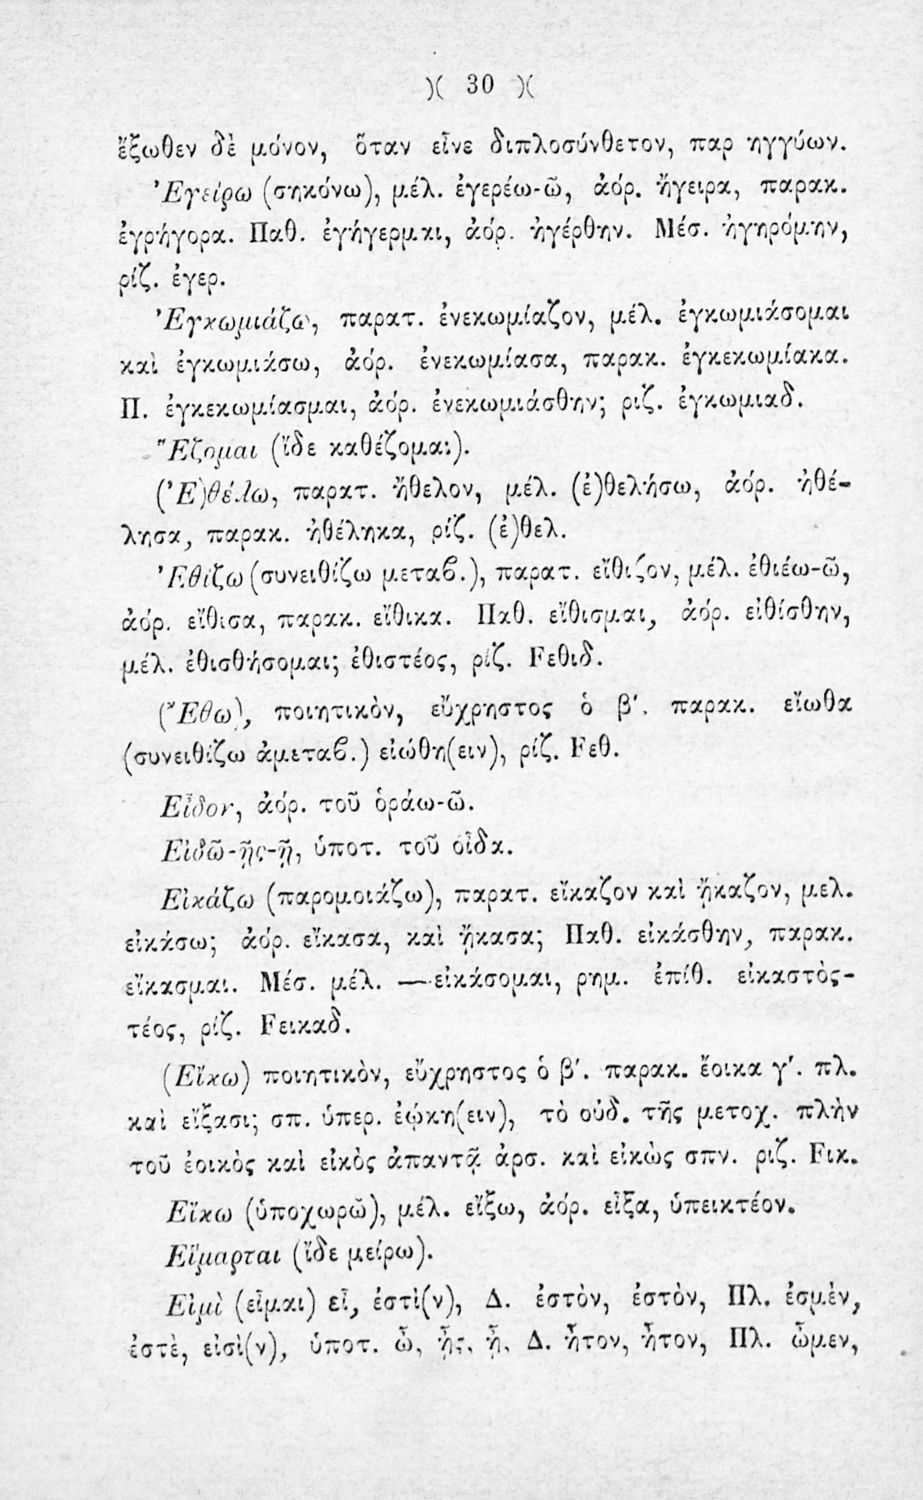 )( 30 )(
ἔξωθεν δὲ μόνον, ὅταν εἶνε διπλοσύνθετον, παρ ηγγύων.
Ἐγείρω (σηκόνω), μέλ. ἐγερέω-ῶ, ἀόρ. ἤγειρα, παρακ.
ἐγρήγορα. Παθ. ἐγήγερμαι, ἀόρ. ἠγέρθην. Μέσ. ἠγηρόμην,
ρίζ. ἐγερ.
Ἐγκωμιάζω, παρατ. ἐνεκωμίαζον, μέλ. ἐγκωμιάσομαι
καὶ ἐγκωμιάσω, ἀόρ. ἐνεκωμίασα, παρακ. ἐγκεκωμίακα.
Π. ἐγκεκωμίασμαι, ἀόρ. ἐνεκωμιάσθην; ριζ. ἐγκωμιαδ.
Ἕζομαι (ἴδε καθέζομαι).
(Ἐ)θέλω, παρατ. ἤθελον, μέλ. (ἐ)θελήσω, ἀόρ. ἠθέ-
λησα, παρακ. ἠθέληκα, ρίζ. (ἐ)θελ.
Ἐθίζω (συνειθίζω μεταβ.), παρατ. εἴθιζον, μέλ. ἐθιέω-ῶ,
ἀόρ. εἴθισα, παρακ. εἴθικα. Παθ. εἴθισμαι, ἀόρ. εἰθίσθην,
μέλ. ἐθισθήσομαι; ἐθιστέος, ρίζ. Fεθιδ.
(Ἔθω), ποιητικὸν, εὔχρηστος ὁ β΄. παρακ. εἴωθα
(συνειθίζω ἀμεταβ.) εἰώθη(ειν), ρίζ. Fεθ.
Εἶδον, ἀόρ. τοῦ ὁράω-ῶ.
Εἰδῶ-ῇς-ῇ, ὑποτ. τοῦ οἶδα.
Εἰκάζω (παρομοιάζω), παρατ. εἴκαζον καὶ ᾔκαζον, μελ.
εἰκάσω; ἀόρ. εἴκασα, καὶ ᾔκασα; Παθ. εἰκάσθην, παρακ.
εἴκασμαι. Μέσ. μέλ. —εἰκάσομαι, ρημ. ἐπίθ. εἰκαστὸς-
τέος, ρίζ. Fεικαδ.
(Εἴκω) ποιητικὸν, εὔχρηστος ὁ β΄. παρακ. ἔοικα γ΄. πλ.
καὶ εἴξασι; σπ. ὑπερ. ἐῴκη(ειν), τὸ οὐδ. τῆς μετοχ. πλὴν
τοῦ ἐοικὸς καὶ εἰκὸς ἀπαντᾷ ἀρσ. καὶ εἰκὼς σπν. ριζ. Fικ.
Εἴκω (ὑποχωρῶ), μέλ. εἴξω, ἀόρ. εἶξα, ὑπεικτέον.
Εἵμαρται (ἴδε μείρω).
Εἰμὶ (εἶμαι) εἶ, ἐστὶ(ν), Δ. ἐστὸν, ἐστὸν, Πλ. ἐσμὲν,
ἐστὲ, εἰσὶ(ν), ὑποτ. ὦ, ᾖς, ᾖ, Δ. ἦτον, ἦτον, Πλ. ὦμεν,